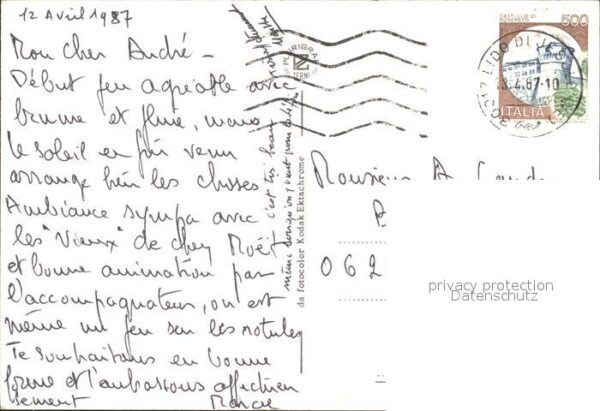 12 Avril 1987
Mon cher André -
Début peu agréable avec
brume et pluie, mais
le soleil en fin venu
arrange bien les choses
Ambiance sympa avec
les "Vieux" de chez Moët
et bonne animation par
l'accompagnateur, on est
même un peu sur les rotules
Te souhaitons en bonne
forme et t'embrassons affectueu
sement Marcel
c'est très beau
même lorsqu'on y vient pour
PLURIGRAF
TERNI
da fotocolor Kodak Ektachrome
CASTELLO DI
ROVERETO
500
ITALIA
LIDO DI
.4.87-10
Monsieur A
062
privacy protection
Datenschutz